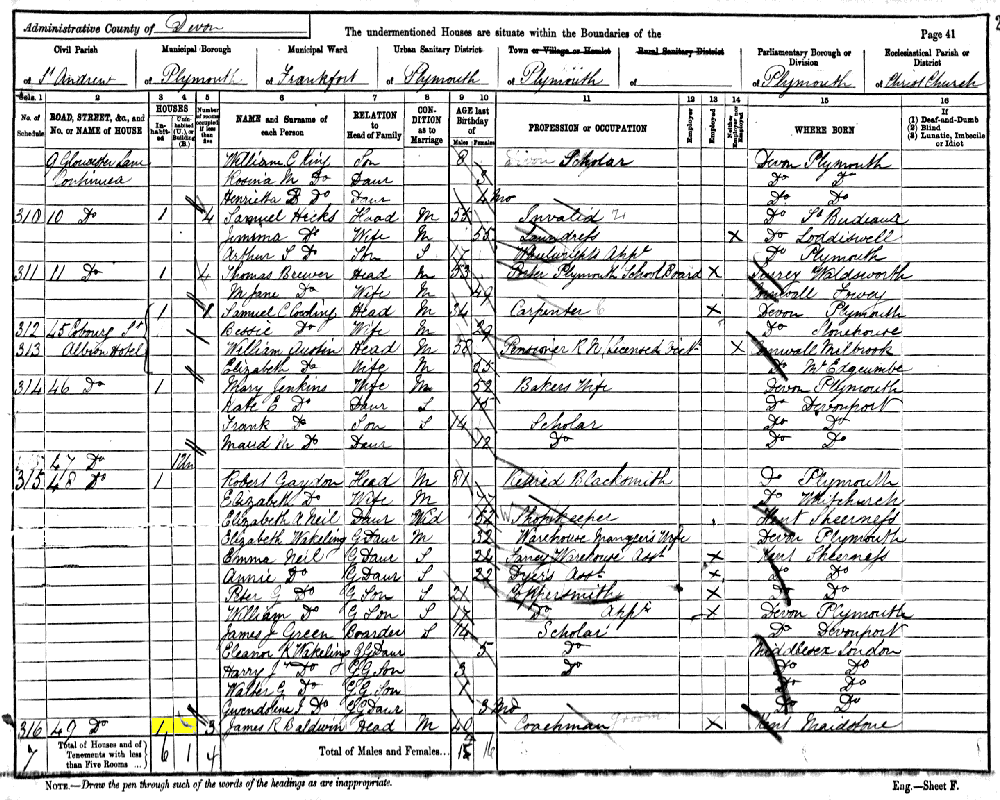 Administrative County of Devon
The undermentioned Houses are situate within the Boundaries of the
Page 41
Civil Parish
Municipal Borough
Municipal Ward
Urban Sanitary District
Town or Village or Hamlet
Rural Sanitary District
Parliamentary Borough or Division
Ecclesiastical Parish or District
of St Andrew
of Plymouth
of Frankfort
of Plymouth
of Plymouth
of
of Plymouth
of Christ Church
Cols. 1 2 3 4 5 6 7 8 9 10 11 12 13 14 15 16
No. of Schedule
ROAD, STREET, &c., and No. or NAME of HOUSE
HOUSES
Inhabited
Uninhabited (U.) or Building (B.)
Number of rooms occupied if less than five
NAME and Surname of each Person
RELATION to Head of Family
CONDITION as to Marriage
AGE last Birthday of
Males Females
PROFESSION or OCCUPATION
Employer
Employed
Neither Employer nor Employed
WHERE BORN
If
(1) Deaf-and-Dumb
(2) Blind
(3) Lunatic, Imbecile or Idiot
9 Gloucester Lane William C King Son 8 Scholar Devon Plymouth
Continued Rosina M Do Daur 3 Do Do
Henrietta B Do Daur 4 Mo Do Do
310 10 Do 1 4 Samuel Hicks Head M 55 Invalid Do St Budeaux
Jemima Do Wife M 55 Laundress X Do Loddiswell
Arthur S Do Son S 17 Wheelwrights Appr Do Plymouth
311 11 Do 1 4 Thomas Brewer Head M 53 Plymouth School Board X Surrey Waldsworth
M Jane Do Wife M 49 Cornwall Fowey
1 Samuel C Cowling Head M 34 Carpenter X Devon Plymouth
312 45 Cobourg St Bessie Do Wife M 29 Do Stonehouse
313 Albion Hotel William Austin Head M 58 Pensioner R N / Licensed Vict X Cornwall Milbrook
Elizabeth Do Wife M 55 Do Mt Edgcumbe
314 46 Do 1 Mary Jenkins Wife M 52 Bakers Wife Devon Plymouth
Kate E Do Daur S 15 Do Devonport
Frank Do Son S 14 Scholar Do Do
Maud M Do Daur 12 Do Do Do
47 Do 1 Un
315 48 Do 1 Robert Gaydon Head M 81 Retired Blacksmith Do Plymouth
Elizabeth Do Wife M 77 Do Whitchurch
Elizabeth A Neil Daur Wid 52 Shopkeeper Kent Sheerness
Elizabeth Wakeling G Daur M 32 Warehouse Manager's Wife Devon Plymouth
Emma Neil G Daur S 24 Fancy Warehouse Asst X Kent Sheerness
Annie Do G Daur S 22 Dyer's Asst X Do Do
Peter G Do G Son S 21 Coppersmith X Do Do
William Do G Son S 17 Do Appr X Devon Plymouth
James J Green Boarder S 14 Scholar Do Devonport
Eleanor K Wakeling G G Daur 5 Do Middlesex London
Harry J Do G G Son 3 Do Do Do
Walter G Do G G Son Do Do
Gwendoline J Do G G Daur 3 Mo Do Do
316 49 Do 1 3 James R Baldwin Head M 40 Coachman Groom X Kent Maidstone
7 Total of Houses and of Tenements with less than Five Rooms ... 6 1 4 Total of Males and Females... 15 16
NOTE.—Draw the pen through such of the words of the headings as are inappropriate.
Eng.—Sheet F.